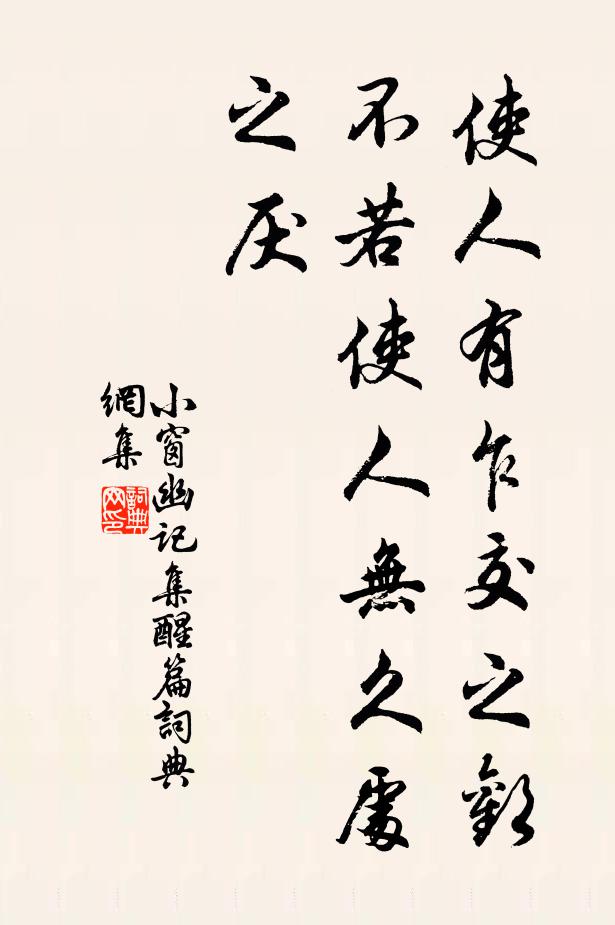 使人有乍交之歡
不若使人無久處
之厌
小窗幽记集醒篇詞典
網集
詞典
网印